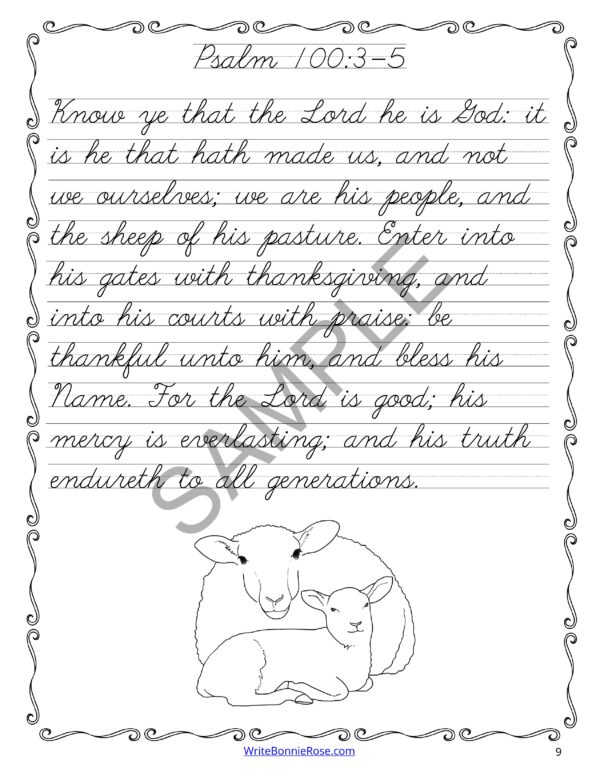 Psalm 100:3-5
Know ye that the Lord he is God: it
is he that hath made us, and not
we ourselves; we are his people, and
the sheep of his pasture. Enter into
his gates with thanksgiving, and
into his courts with praise: be
thankful unto him, and bless his
Name. For the Lord is good; his
mercy is everlasting; and his truth
endureth to all generations.
SAMPLE
WriteBonnieRose.com
9